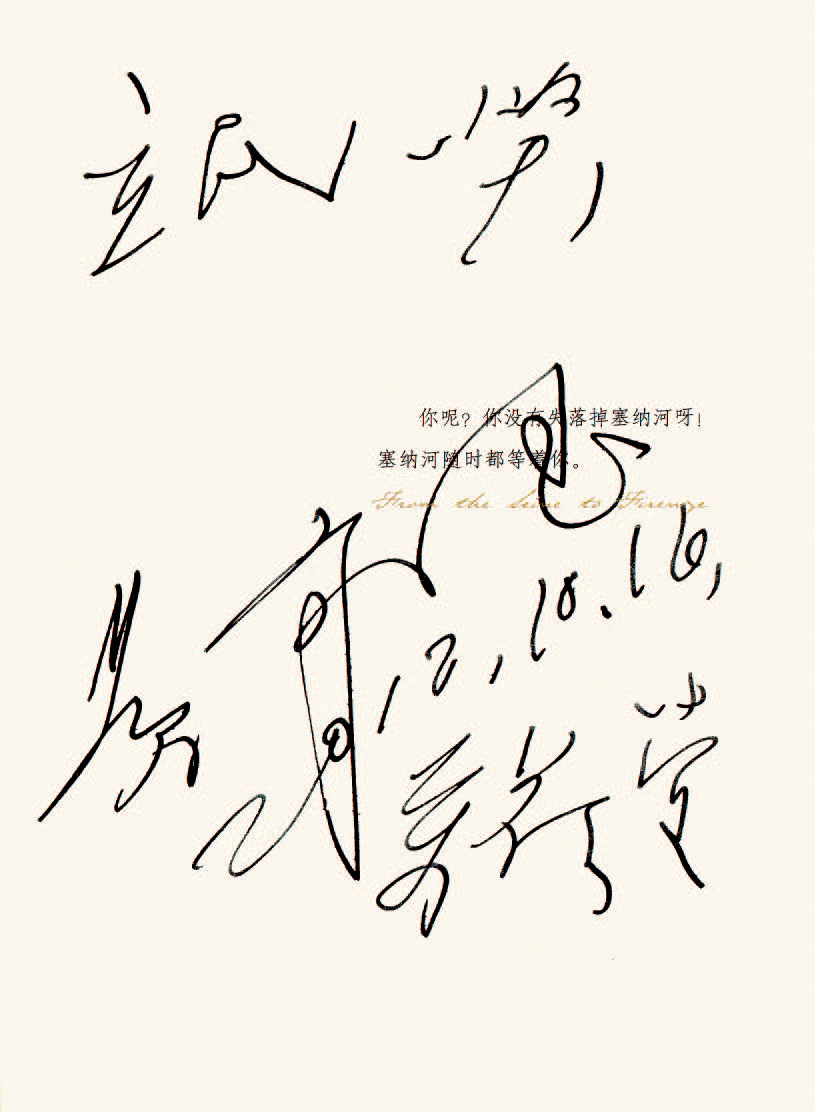 立民 一笑,
你呢？你没有失落掉塞纳河呀！
塞纳河随时都等着你。
From the Seine to Firenze
12,10.16,
万荷堂